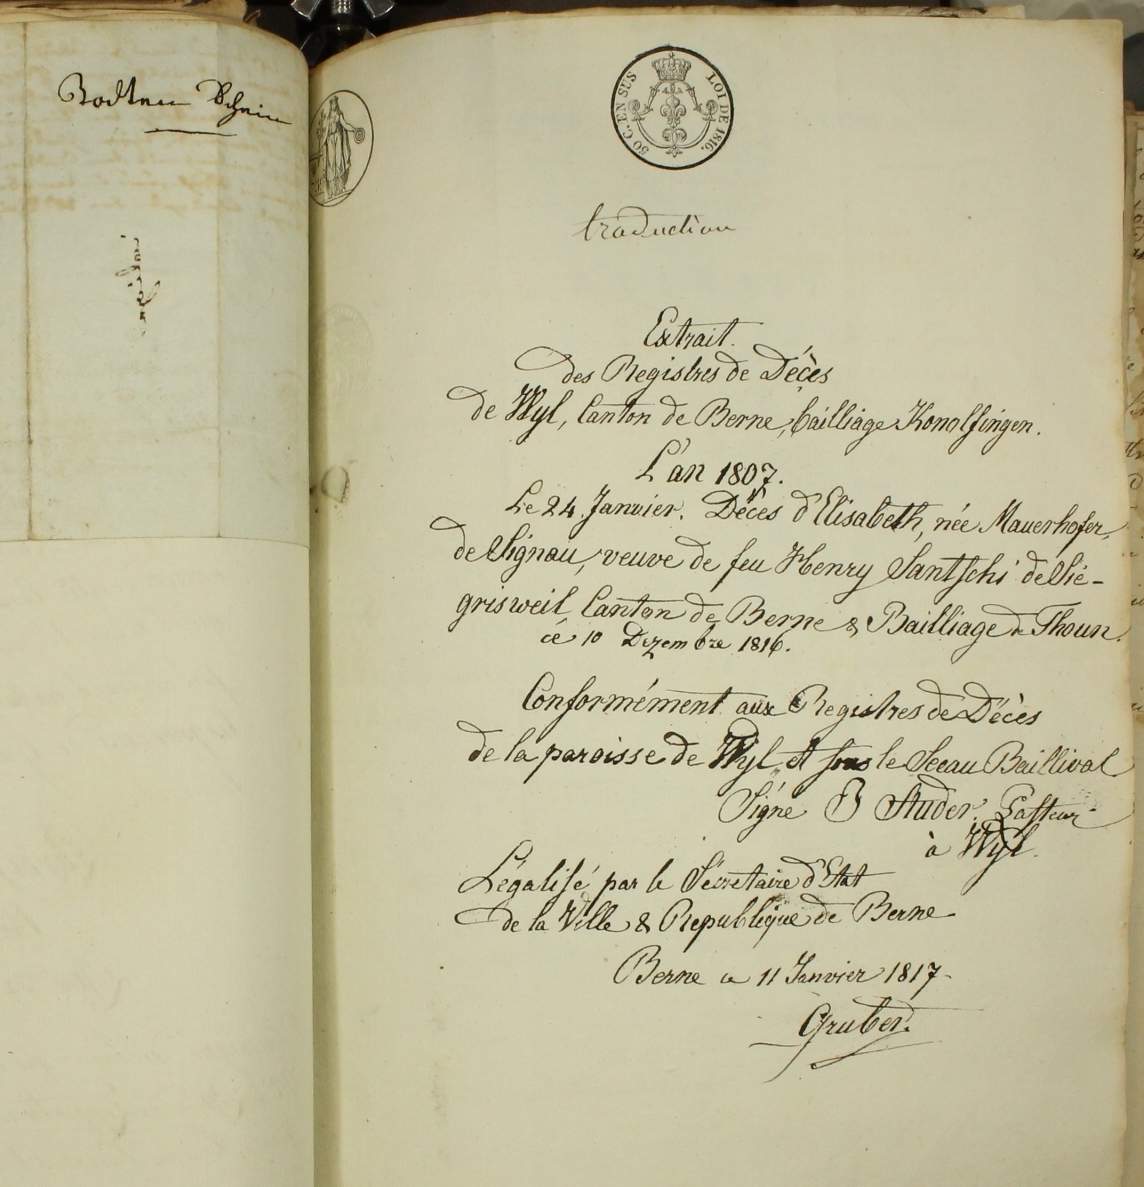 50 C. EN SUS LOI DE 1816.
traduction
Extrait.
des Registres de Décès
de Wyl, Canton de Berne, bailliage Konolfingen.
L'an 1807.
Le 24. Janvier. Décès d'Elisabeth, née Mauerhofer,
de Signau, veuve de feu Henry Santschi de Sié-
grisweil, Canton de Berne & Bailliage de Thoun.
ce 10 Dezembre 1816.
Conformément aux Registres de Décès
de la paroisse de Wyl et sous le Sceau Baillival
Signé Studer. Pasteur
à Wyl.
Légalisé par le Sécretaire d'Etat
de la Ville & Republique de Berne
Berne ce 11 Janvier 1817.
Gruber.